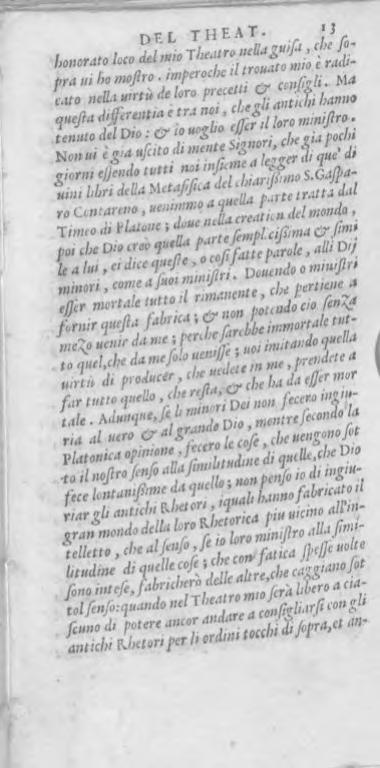 DEL THEAT. 13
honorato loco del mio Theatro nella guisa, che so-
pra ui ho mostro. imperoche il trouato mio è radi-
cato nella uirtù de loro precetti & consigli. Ma
questa differentia è tra noi, che gli antichi hanno
tenuto del Dio: & io uoglio esser il loro ministro.
Non ui è gia uscito di mente Signori, che gia pochi
giorni essendo tutti noi insieme a legger di que' di
uini libri della Metafisica del chiarissimo S. Gaspa-
ro Contareno, uenimmo a quella parte tratta dal
Timeo di Platone; doue nella creation del mondo,
poi che Dio creò quella parte semplicissima & simi
le a lui, ei dice queste, o cosi fatte parole, alli Dij
minori, come a suoi ministri. Douendo o ministri
esser mortale tutto il rimanente, che pertiene a
fornir questa fabrica; & non potendo cio senza
mezo uenir da me; perche sarebbe immortale tut-
to quel, che da me solo uenisse; uoi imitando quella
uirtù di producer, che uedete in me, prendete a
far tutto quello, che resta, & che ha da esser mor
tale. Adunque, se li minori Dei non fecero ingiu-
ria al uero & al grando Dio, mentre secondo la
Platonica opinione, fecero le cose, che uengono sot
to il nostro senso alla similitudine di quelle, che Dio
fece lontanissime da quello; non penso io di ingiu-
riar gli antichi Rhetori, iquali hanno fabricato il
gran mondo della loro Rhetorica piu uicino all'in-
telletto, che al senso, se io loro ministro alla simi-
litudine di quelle cose; che con fatica spesse uolte
sono intese, fabricherò delle altre, che caggiano sot
tol senso: quando nel Theatro mio serà libero a cia-
scuno di potere ancor andare a consigliarsi con gli
antichi Rhetori per li ordini tocchi di sopra, et an-